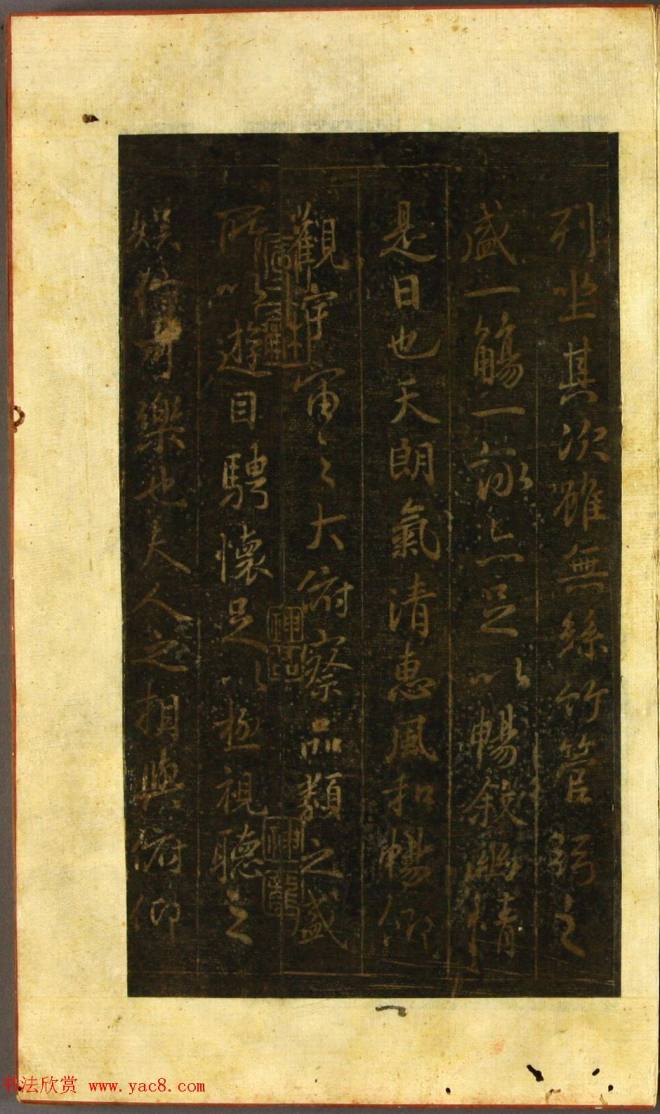 列坐其次雖無絲竹管弦之
盛一觴一詠亦足以暢敘幽情
是日也天朗氣清惠風和暢仰
觀宇宙之大俯察品類之盛
所以遊目騁懷足以極視聽之
娛信可樂也夫人之相與俯仰
神品
神龍
书法欣赏 www.yac8.com